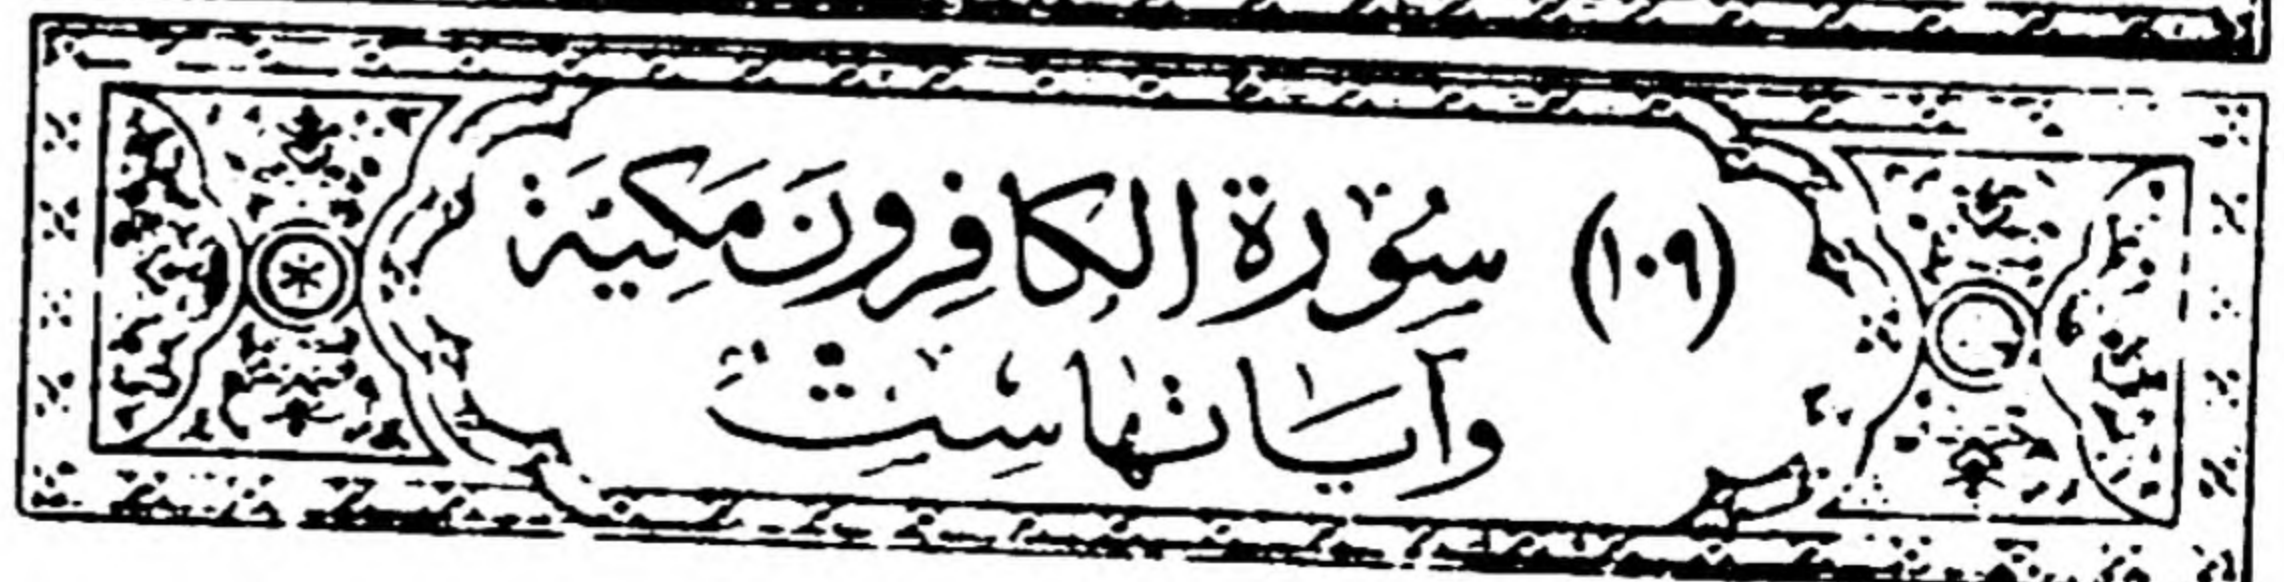 (١٠٩) سُوْرَةُ الكافِرونَ مَكِيَّة
وآيَاتهَا سِتٌّ